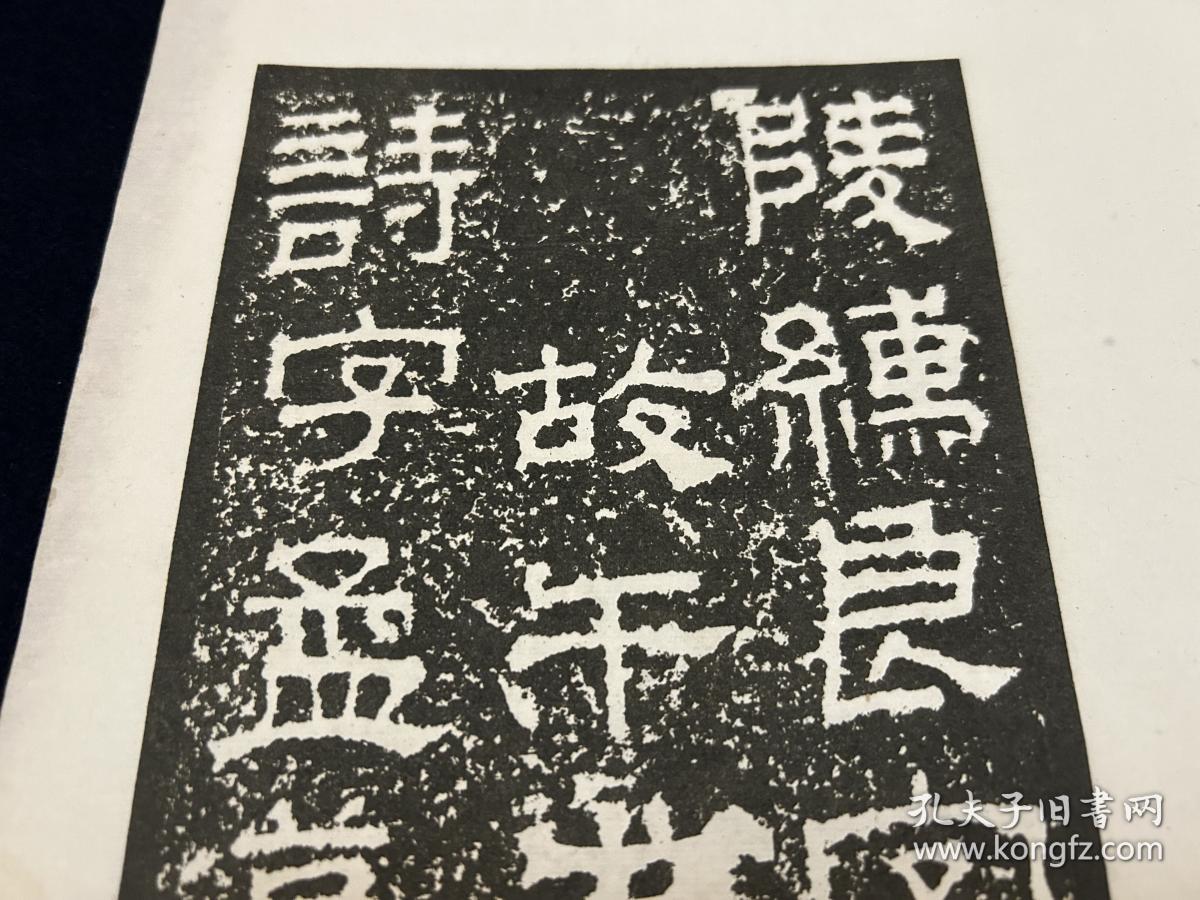 陵良
故午
詩字孟
孔夫子旧書网
www.kongfz.com